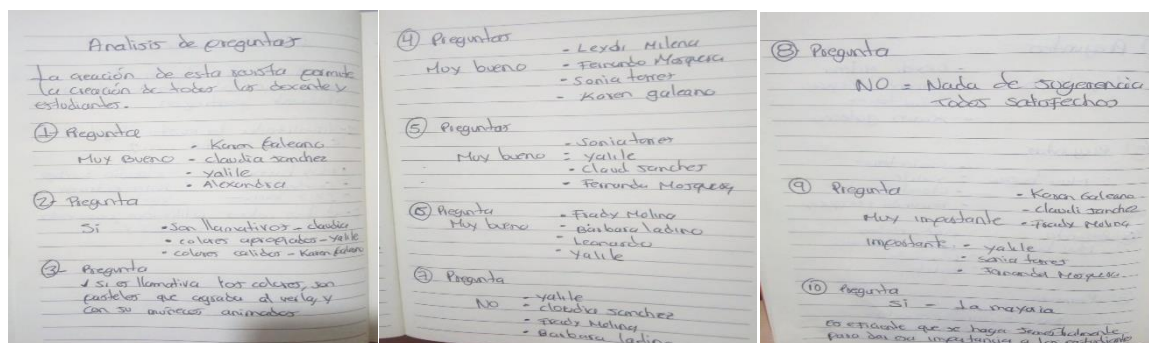 Analisis de preguntas
La creación de esta revista permite
la creación de todos los docente y
estudiantes.
① Pregunta
- Karen Galeano
Muy Bueno - claudia sanchez
- yalile
- Alexandra
② Pregunta
Si - Son llamativos - claudia
• colores apropiados - yalile
• colores calidos - Karen Galeano
③ Pregunta
si es llamativa los colores, son
pasteles que agrada al verla, y
con su muñecos animados
④ Preguntas
- Leydi Milena
Muy bueno - Fernando Mosquera
- Sonia torres
- Karen galeano
⑤ Preguntas
- Sonia torres
Muy bueno = yalile
- Claud sanches
- Fernando Mosquera
⑥ Pregunta - Frady Molina
Muy bueno - Barbara ladino
- Leonardo
- Yalile
⑦ Pregunta
- yalile
NO - claudia sanchez
- Frady Molina
- Barbara ladino
⑧ Pregunta
NO = Nada de sugerencia
todos satofechos
⑨ Pregunta - Karen Galeano
- claudi sanchez
Muy importante - Frady Molina
importante - yalile
- sonia torres
- Fernanda Mosquera
⑩ Pregunta
Si - la mayoria
es eficiente que se haga semestralmente
para dar esa importancia a los estudiante